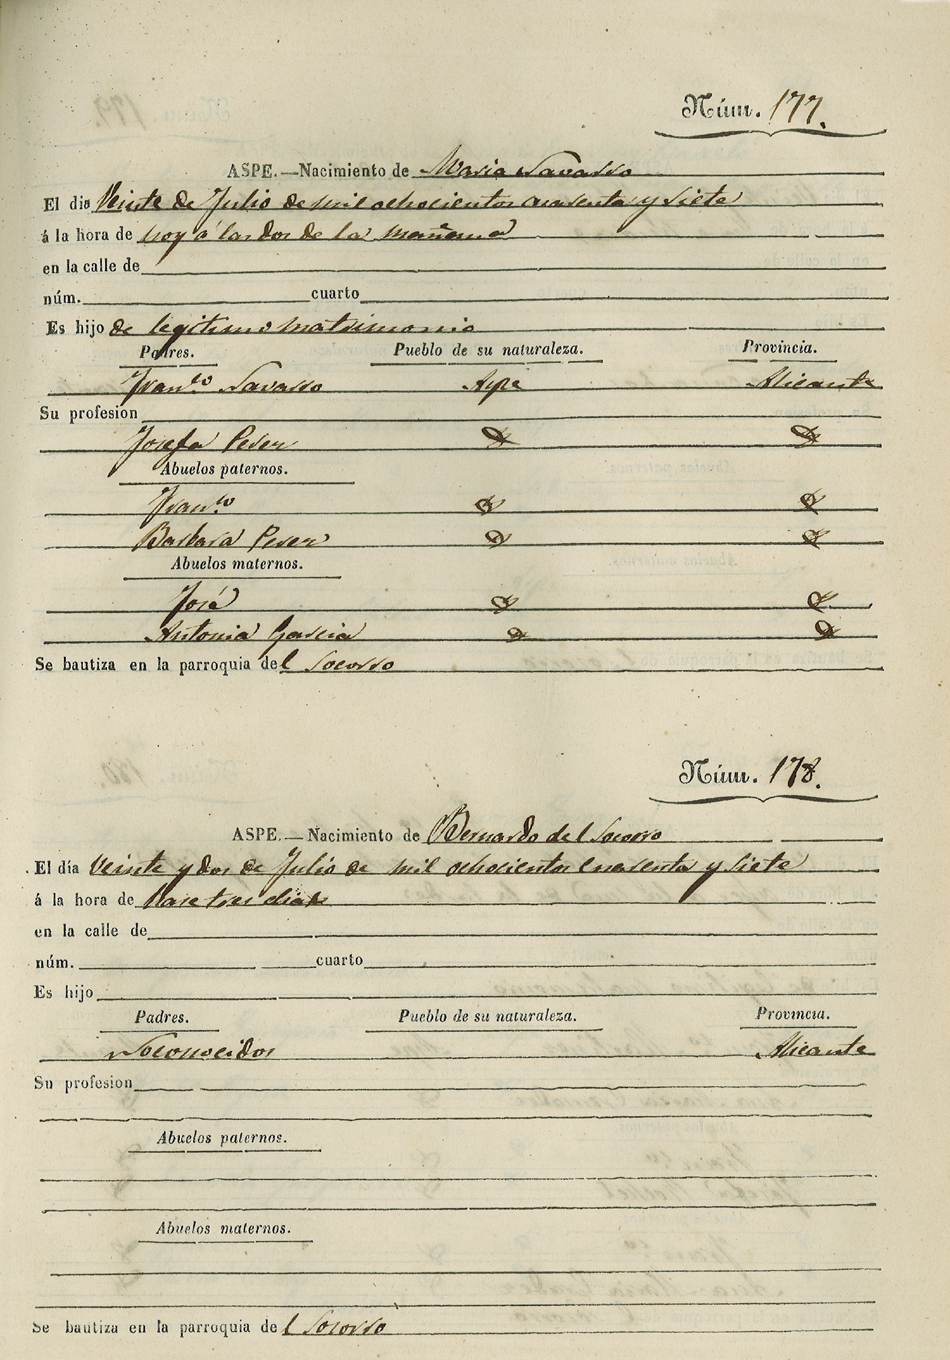 Núm. 177.
ASPE.—Nacimiento de Maria Navarro
El dia Veinte de Julio de mil ochocientos cuarenta y siete
á la hora de hoy á las dos de la mañana
en la calle de
núm. cuarto
Es hijo de legitimo matrimonio
Padres. Pueblo de su naturaleza. Provincia.
Fran.co Navarro Aspe Alicante
Su profesion
Josefa Perez D D
Abuelos paternos.
Fran.co D D
Barbara Perez D D
Abuelos maternos.
José D D
Antonia Garcia D D
Se bautiza en la parroquia del Socorro
Núm. 178.
ASPE.—Nacimiento de Bernardo del Socorro
El día Veinte y dos de Julio de mil ochocientos cuarenta y siete
á la hora de hace tres dias
en la calle de
núm. cuarto
Es hijo
Padres. Pueblo de su naturaleza. Provincia.
Noconocidos Alicante
Su profesion
Abuelos paternos.
Abuelos maternos.
Se bautiza en la parroquia del Socorro